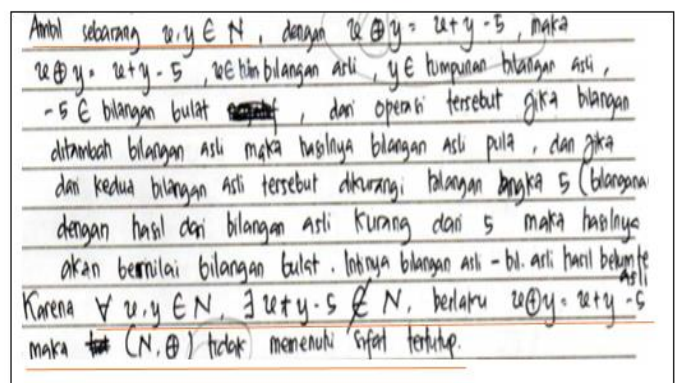 Ambil sebarang x,y ∈ N, dengan x ⊕ y = x+y-5, maka
x ⊕ y = x+y-5, x ∈ him bilangan asli, y ∈ himpunan bilangan asli,
-5 ∈ bilangan bulat, dari operasi tersebut jika bilangan
ditambah bilangan asli maka hasilnya bilangan asli pula, dan jika
dari kedua bilangan asli tersebut dikurangi angka 5 (bilangan
dengan hasil dari bilangan asli kurang dari 5 maka hasilnya
akan bernilai bilangan bulat. Intinya bilangan asli - bil. asli hasil belum te
asli
Karena ∀ x,y ∈ N, ∃ x+y-5 ∉ N, berlaku x⊕y = x+y-5
maka (N,⊕) tidak memenuhi sifat tertutup.